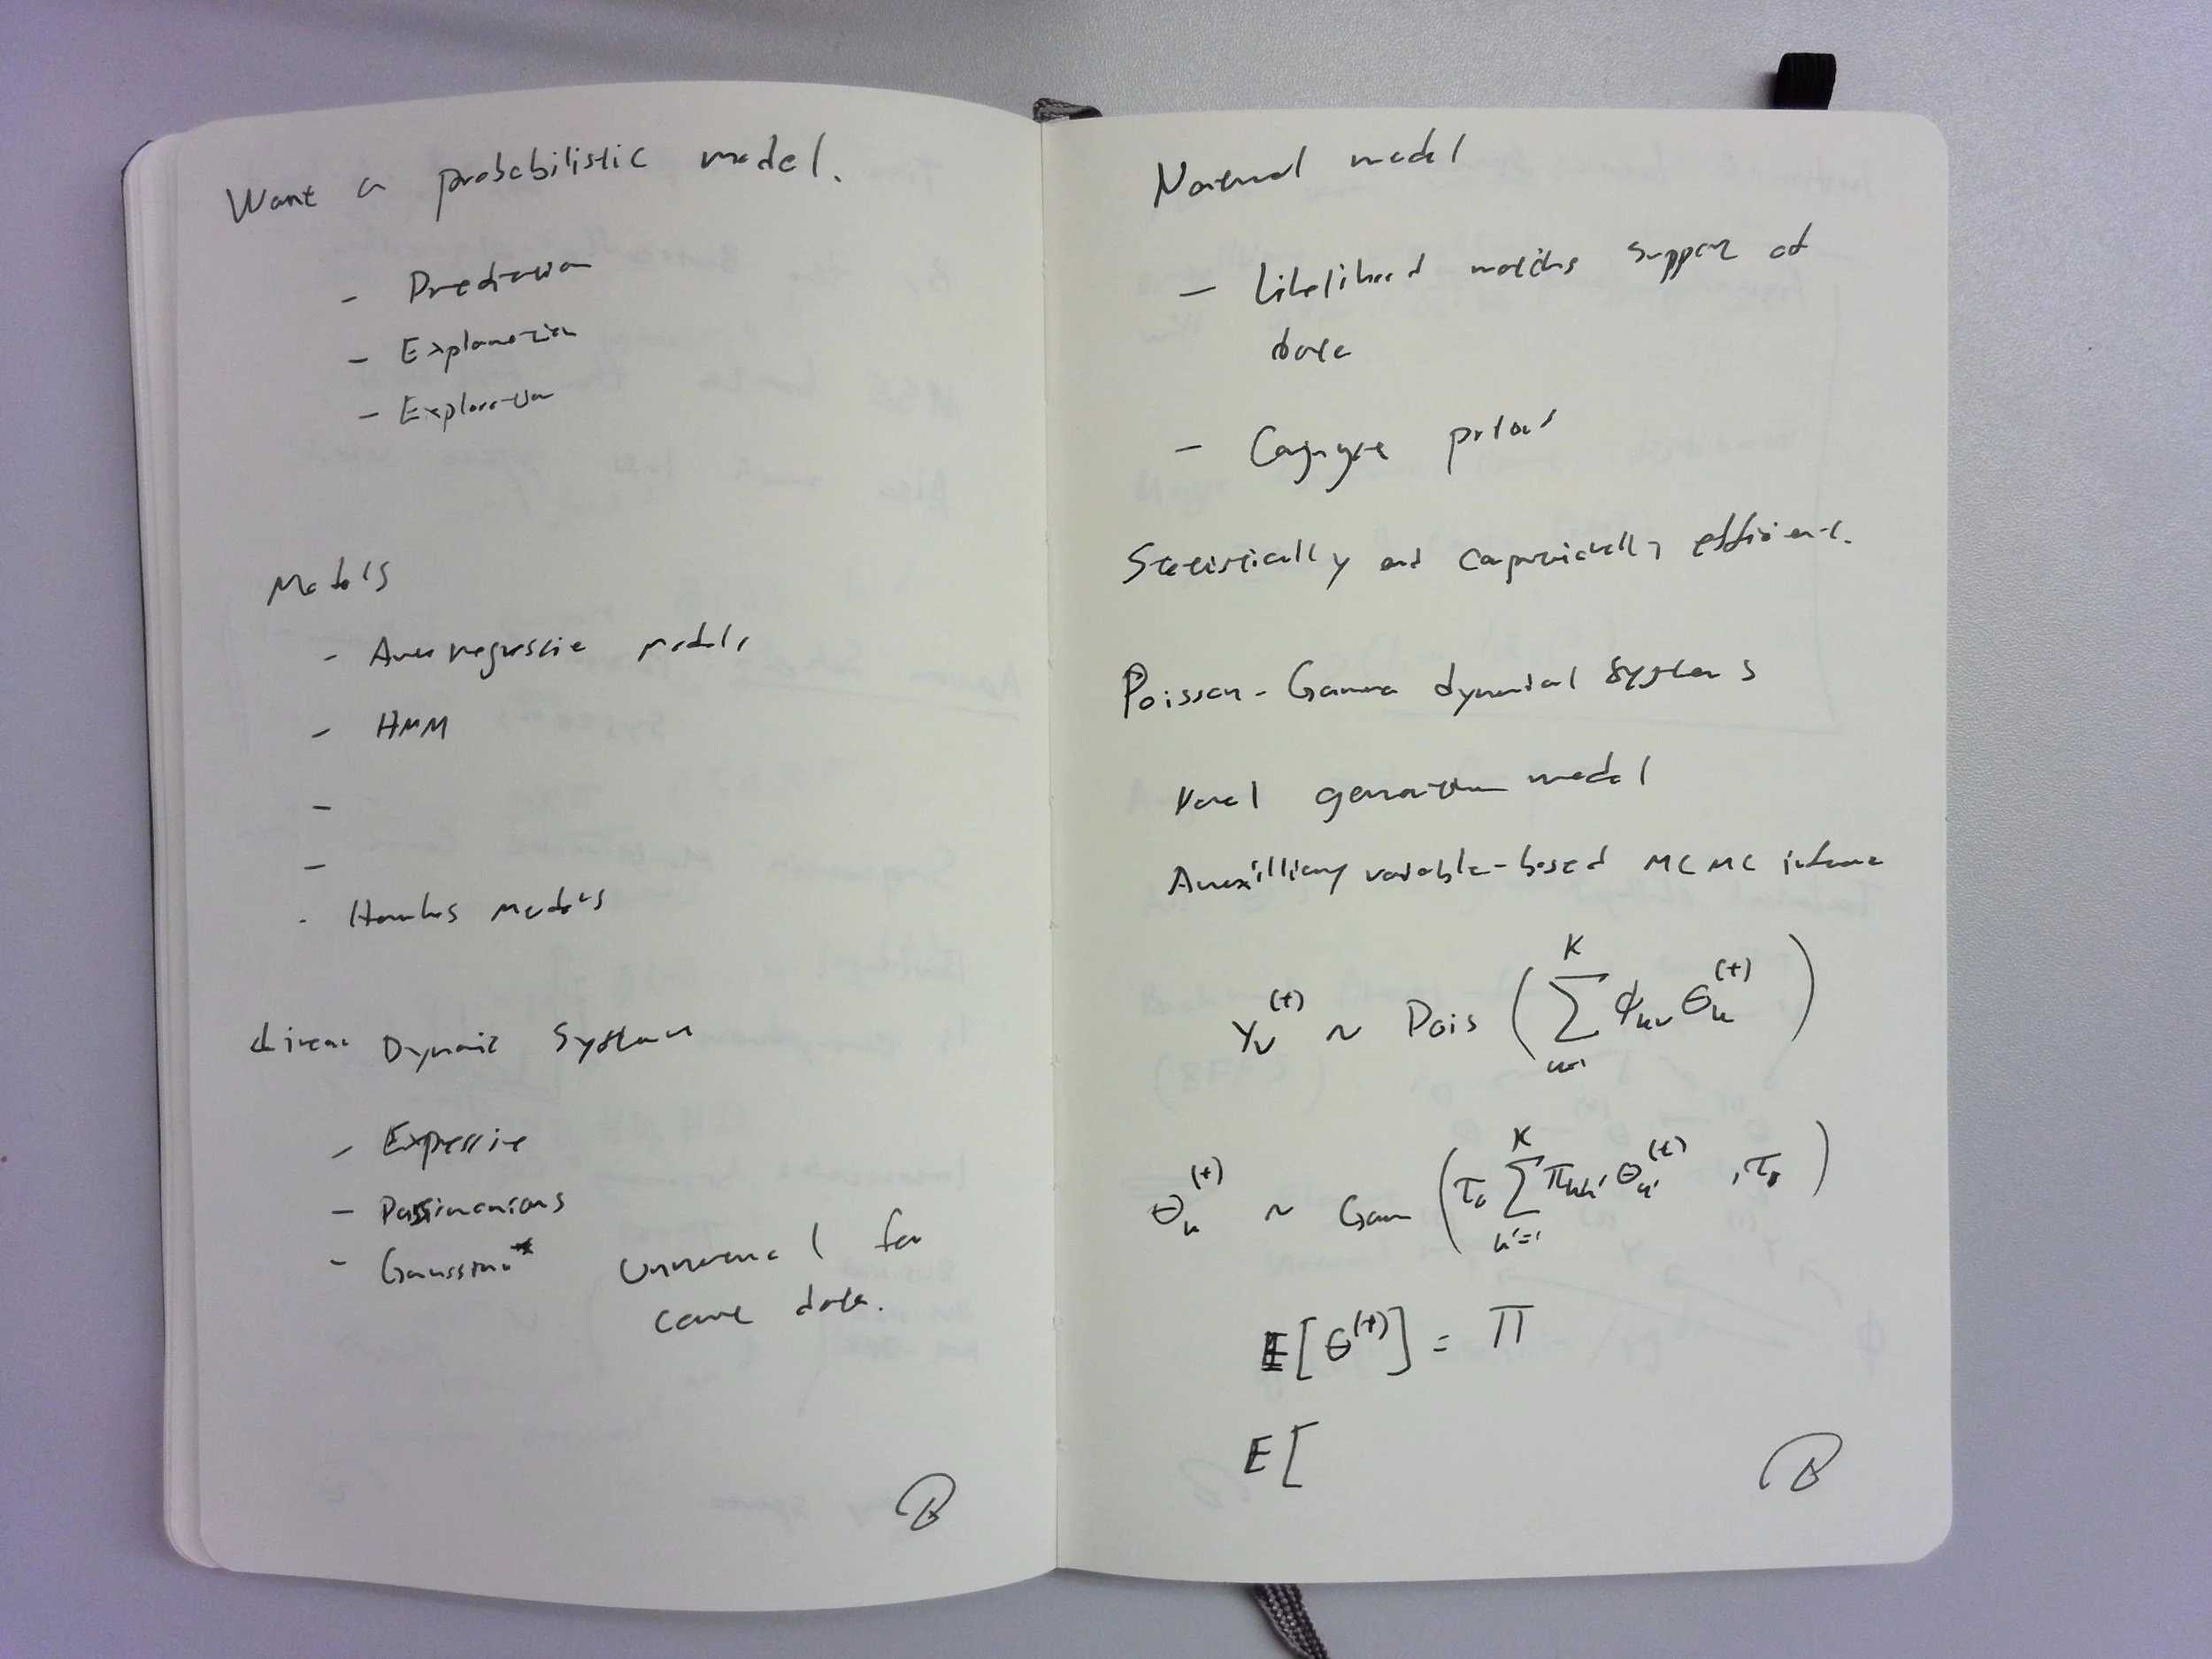 Want a probabilistic model.
- Prediction
- Explanation
- Exploration
Models
- Autoregressive models
- HMM
-
-
- Hawkes Models
Linear Dynamic System
- Expressive
- Parsimonious
- Gaussian* unnatural for
count data.
Natural model
- Likelihood matches support of
data
- Conjugate priors
Statistically and computationally efficient.
Poisson-Gamma dynamical systems
Novel generative model
Auxilliary variable-based MCMC inference
Y_v^(t) ~ Pois ( ∑_{k=1}^K ϕ_kv θ_k^(t) )
θ_k^(t) ~ Gam ( τ_0 ∑_{k'=1}^K π_kk' θ_k'^(t) , τ_0 )
E[θ^(t)] = Π
E[